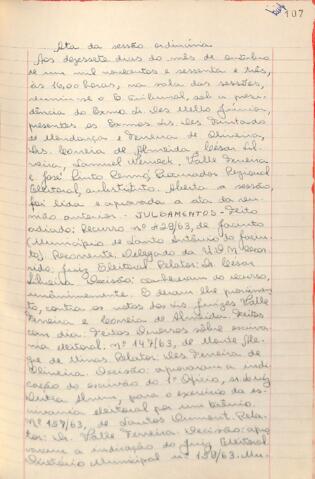 107
Ata da sessão ordinária
Aos dezessete dias do mês de outubro
de um mil novecentos e sessenta e três,
às 16,00 horas, na sala das sessões,
reuniu-se o E. Tribunal, sob a presi-
dência do Exmo. Sr. Des. Mello Júnior,
presentes os Exmos. Srs. Des. Furtado
de Mendonça e Ferreira de Oliveira,
Drs. Corrêa de Almeida, César Sil-
veira, Samuel Werneck, Valle Ferreira
e José Pinto Renó, Procurador Regional
Eleitoral, substituto. Aberta a sessão,
foi lida e aprovada a ata da reu-
nião anterior. - JULGAMENTOS - Feito
adiado: Recurso nº 428/63, de Jacinto
(Município de Santo Antônio do Jacin-
to) Recorrente, Delegado da U.D.N. Recor-
rido: Juiz Eleitoral. Relator: Dr. César
Silveira. Decisão: conheceram do recurso,
unânimemente. E deram-lhe provimen-
to, contra os votos dos srs. juízes Valle
Ferreira e Corrêa de Almeida. Feitos
com dia. Feitos Diversos sôbre escriva-
nia eleitoral. nº 147/63, de Monte Ale-
gre de Minas. Relator: Des. Ferreira de
Oliveira. Decisão: aprovaram a indi-
cação do escrivão do 1º Ofício, sr.
Dutra Alvim, para o exercício da es-
crivania eleitoral por um biênio.
Nº 157/63, de Santos Dumont. Rela-
tor: Dr. Valle Ferreira. Decisão: apro-
varam a indicação do Juiz Eleitoral
Diretório Municipal nº 159/63. Mu-